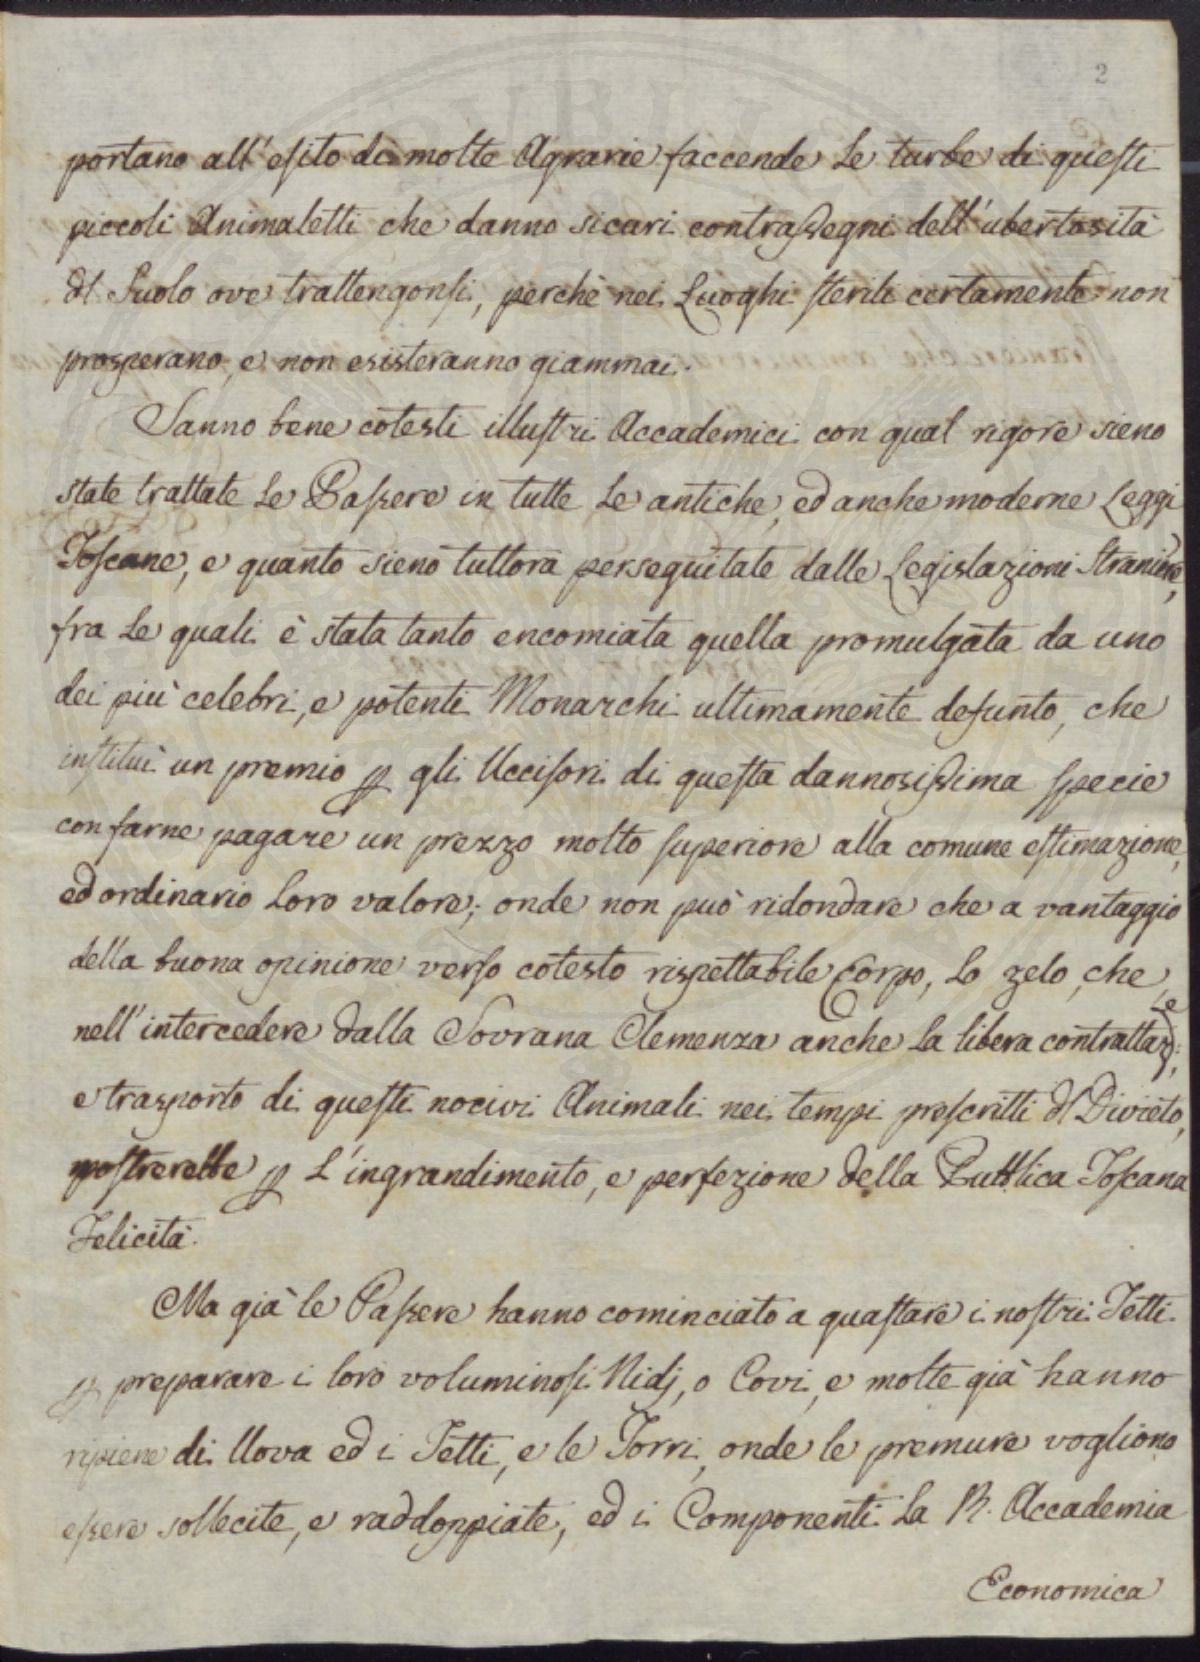 2
portano all'esito di molte Agrarie faccende le turbe di questi
piccoli Animaletti che danno sicuri contrassegni dell'ubertosità
dl Suolo ove trattengonsi, perchè nei Luoghi sterili certamente non
prosperano, e non esisteranno giammai.
Sanno bene cotesti illustri Accademici con qual rigore sieno
state trattate le Passere in tutte le antiche, ed anche moderne Leggi
Toscane, e quanto sieno tuttora perseguitate dalle Legislazioni Straniere,
fra le quali è stata tanto encomiata quella promulgata da uno
dei più celebri, e potenti Monarchi ultimamente defunto, che
instituì un premio p gli Uccisori di questa dannosissima specie
con farne pagare un prezzo molto superiore alla comune estimazione,
ed ordinario loro valore; onde non può ridondare che a vantaggio
della buona opinione verso cotesto rispettabile Corpo, lo zelo, che
nell'intercedere dalla Sovrana Clemenza anche la libera contrattaz:e,
e trasporto di questi nocivi Animali nei tempi prescritti dl Divieto,
mostrerebbe p l'ingrandimento, e perfezione della Pubblica Toscana
Felicità.
Ma già le Passere hanno cominciato a guastare i nostri Tetti
p preparare i loro voluminosi Nidj, o Covi, e molte già hanno
ripiene di Uova ed i Tetti, e le Torri, onde le premure vogliono
essere sollecite, e raddoppiate, ed i Componenti la R. Accademia
Economica